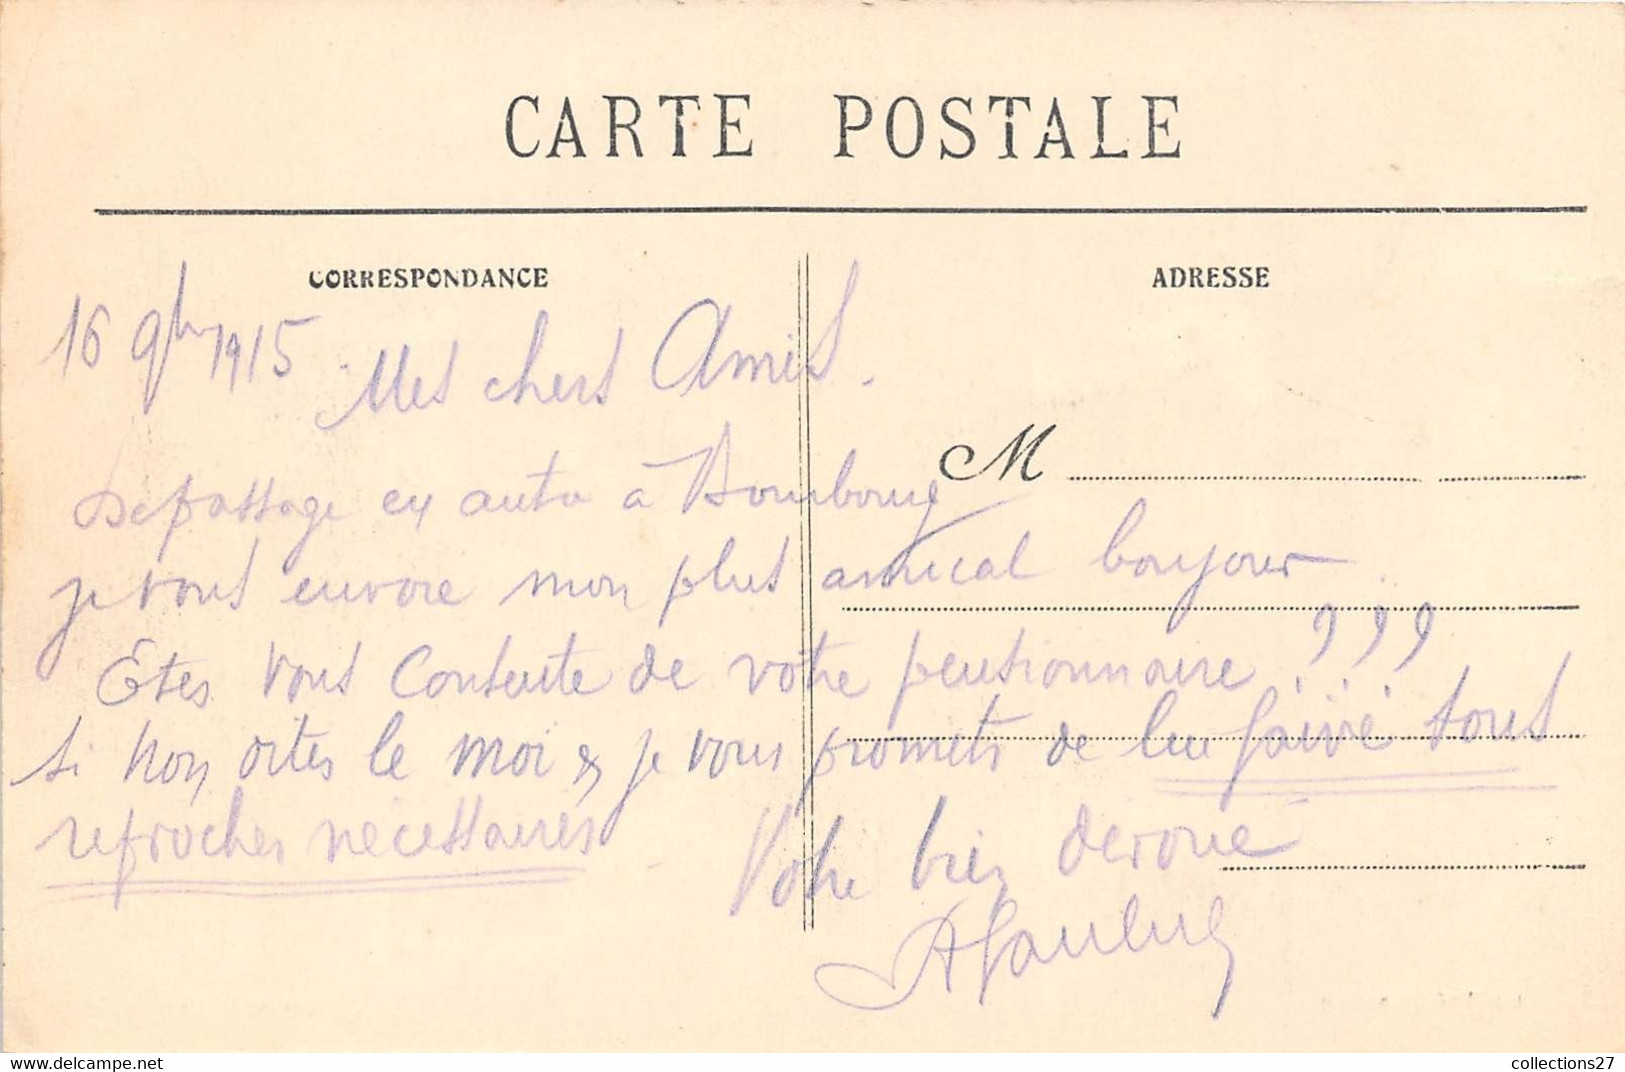 CARTE POSTALE
CORRESPONDANCE
ADRESSE
16 9bre 1915
Mes chers Amis.
De passage en auto à Bourbourg
M
je vous envoie mon plus amical bonjour.
Êtes vous contente de votre pensionnaire ???
si non dites le moi & je vous promets de lui faire tous
reproches nécessaires
Votre bien dévoué
collections27
www.delcampe.net